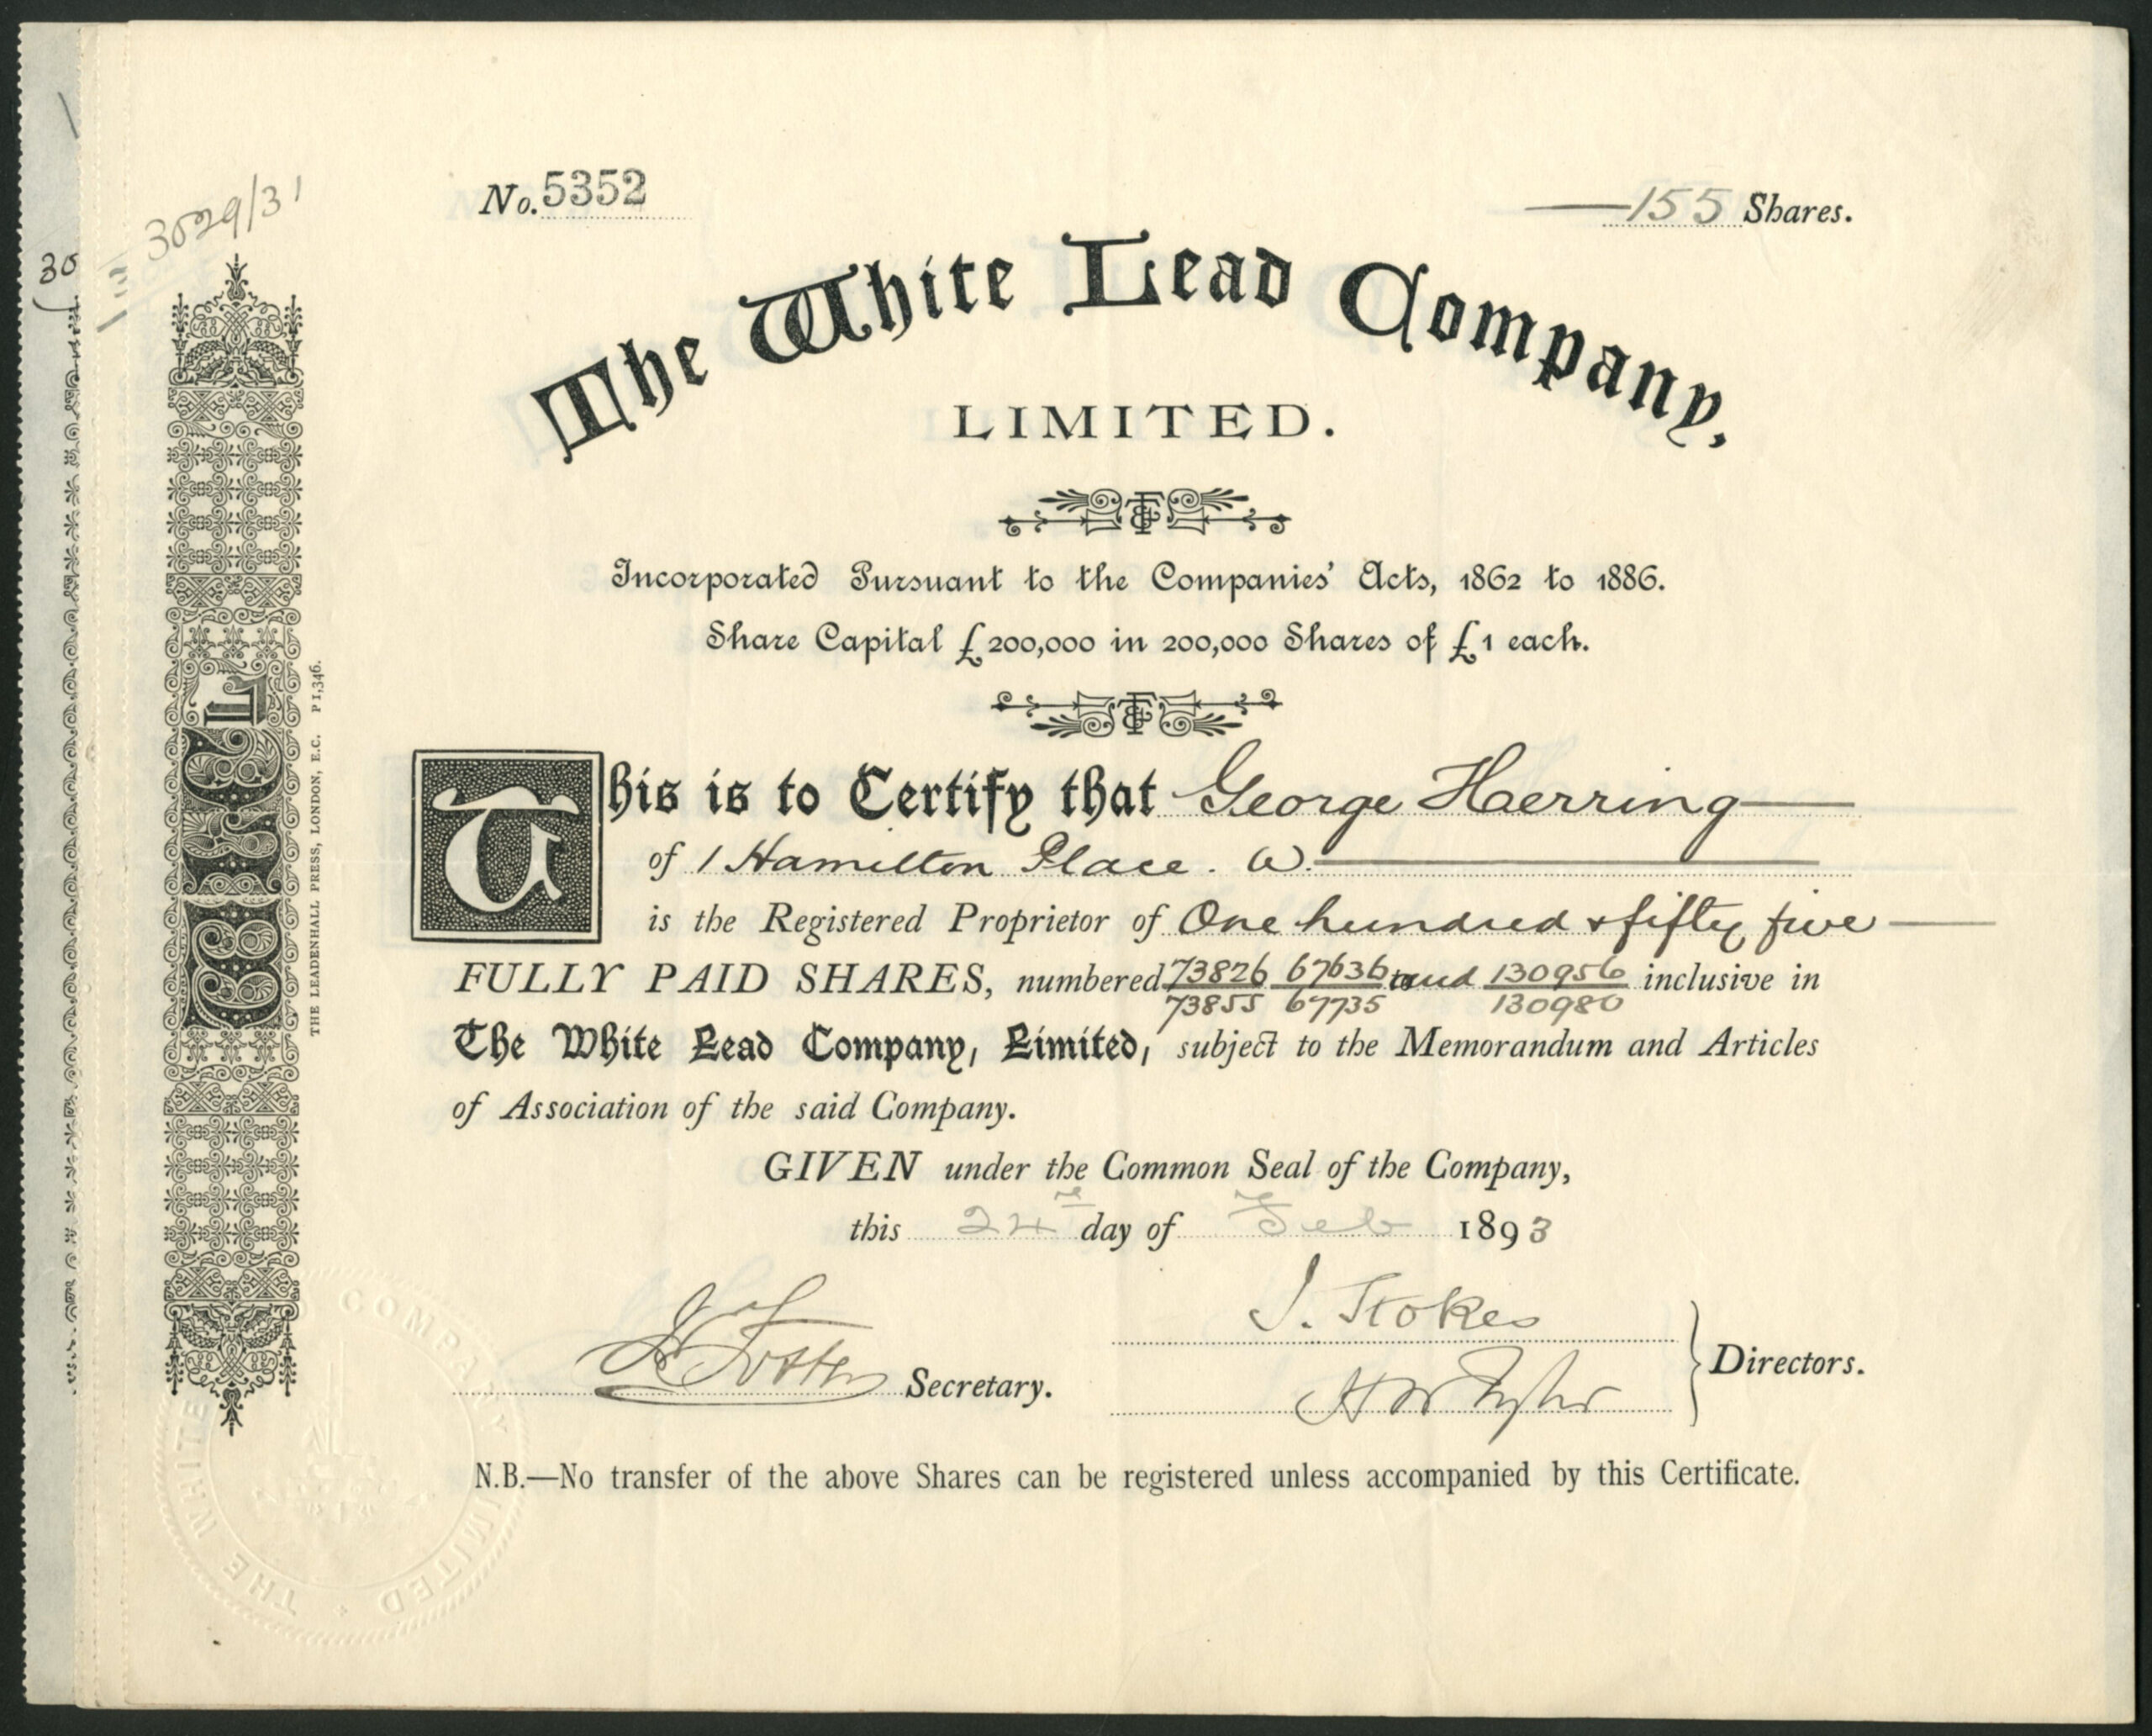 3029/31
30
No. 5352
155 Shares.
The White Lead Company,
LIMITED.
Incorporated Pursuant to the Companies' Acts, 1862 to 1886.
Share Capital £200,000 in 200,000 Shares of £1 each.
This is to Certify that George Herring
of 1 Hamilton Place. W.
is the Registered Proprietor of One hundred & fifty five
FULLY PAID SHARES, numbered 73826 67636 and 130956 inclusive in
73855 67735 130980
The White Lead Company, Limited, subject to the Memorandum and Articles
of Association of the said Company.
GIVEN under the Common Seal of the Company,
this 24th day of Feb 1893
J. Stokes
Foster Secretary.
H W Tyler
Directors.
N.B.—No transfer of the above Shares can be registered unless accompanied by this Certificate.
THE LEADENHALL PRESS, LONDON, E.C. P 1,346.
THE WHITE LEAD COMPANY LIMITED